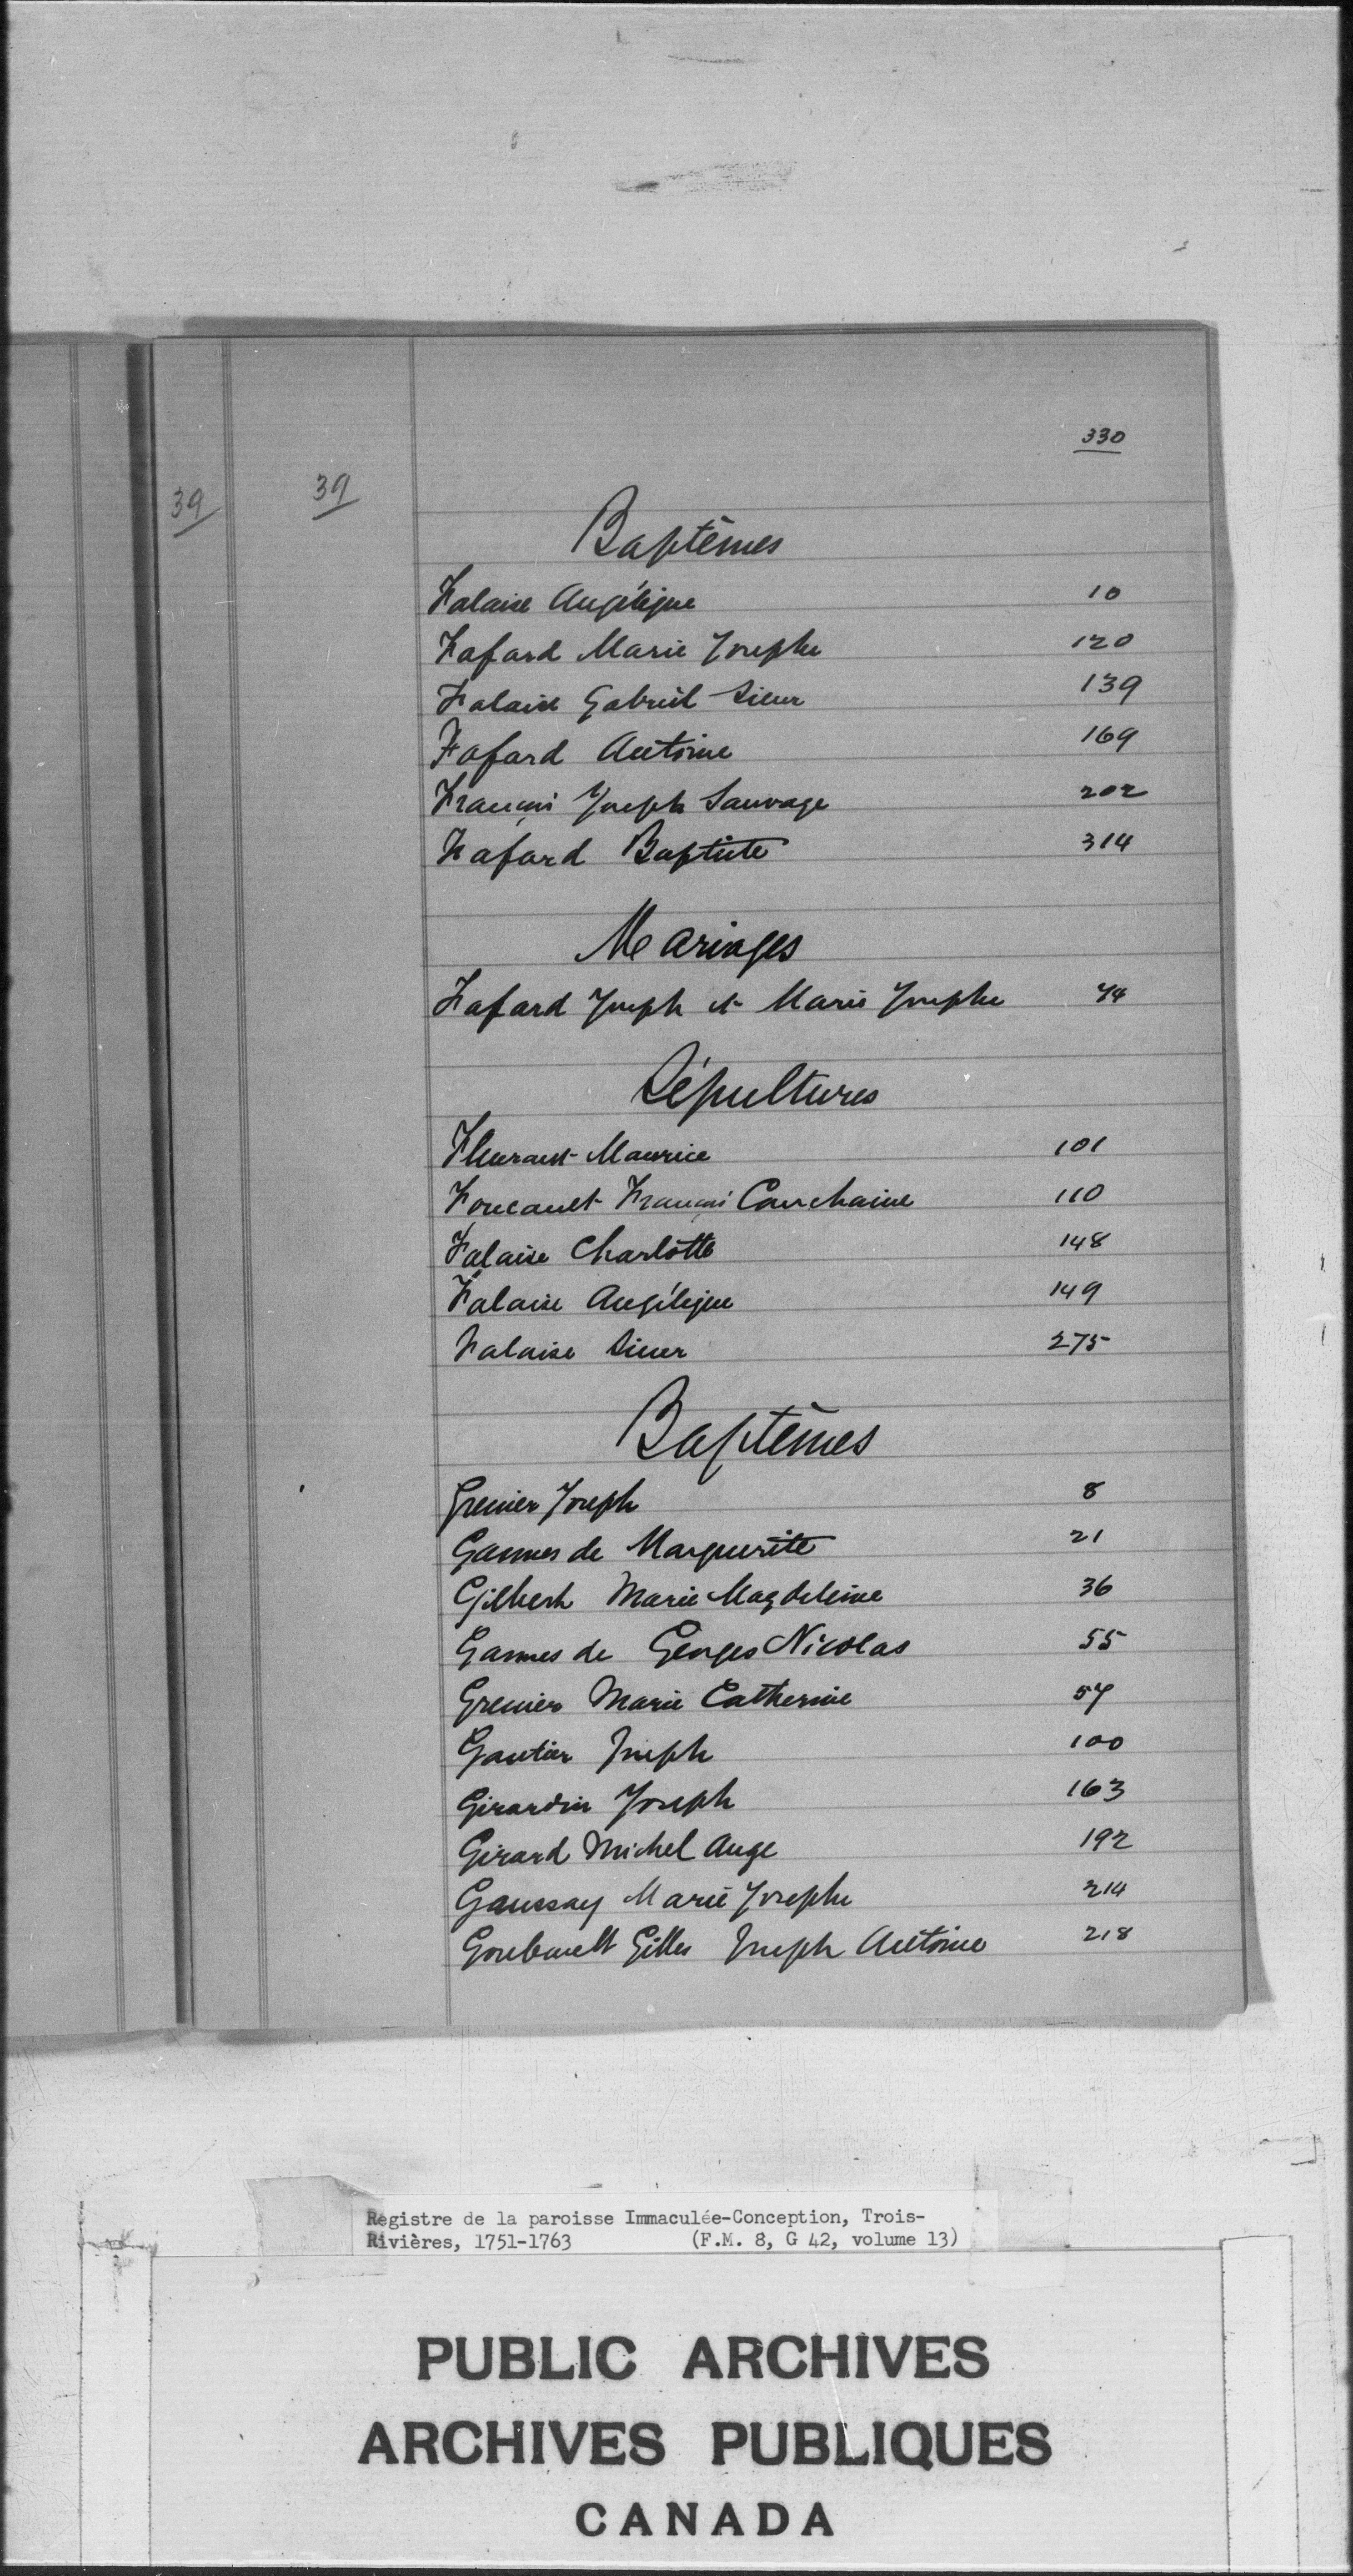 330
39
39
Baptêmes
Falaise Angélique 10
Fafard Marie Josephe 120
Falaise Gabriel Sieur 139
Fafard Antoine 169
François Joseph Sauvage 202
Fafard Baptiste 314
Mariages
Fafard Joseph et Marie Josephe 74
Sépultures
Fleuraut Maurice 101
Foucault François Courchaine 110
Falaise Charlotte 148
Falaise Angélique 149
Falaise Sieur 275
Baptêmes
Grenier Joseph 8
Gannes de Marguerite 21
Gilbert Marie Magdeleine 36
Gannes de Georges Nicolas 55
Grenier Marie Catherine 57
Gautier Joseph 100
Girardin Joseph 163
Girard Michel Ange 192
Gaussay Marie Josephe 214
Goubault Gilles Joseph Antoine 218
Registre de la paroisse Immaculée-Conception, Trois-
Rivières, 1751-1763 (F.M. 8, G 42, volume 13)
PUBLIC ARCHIVES
ARCHIVES PUBLIQUES
CANADA